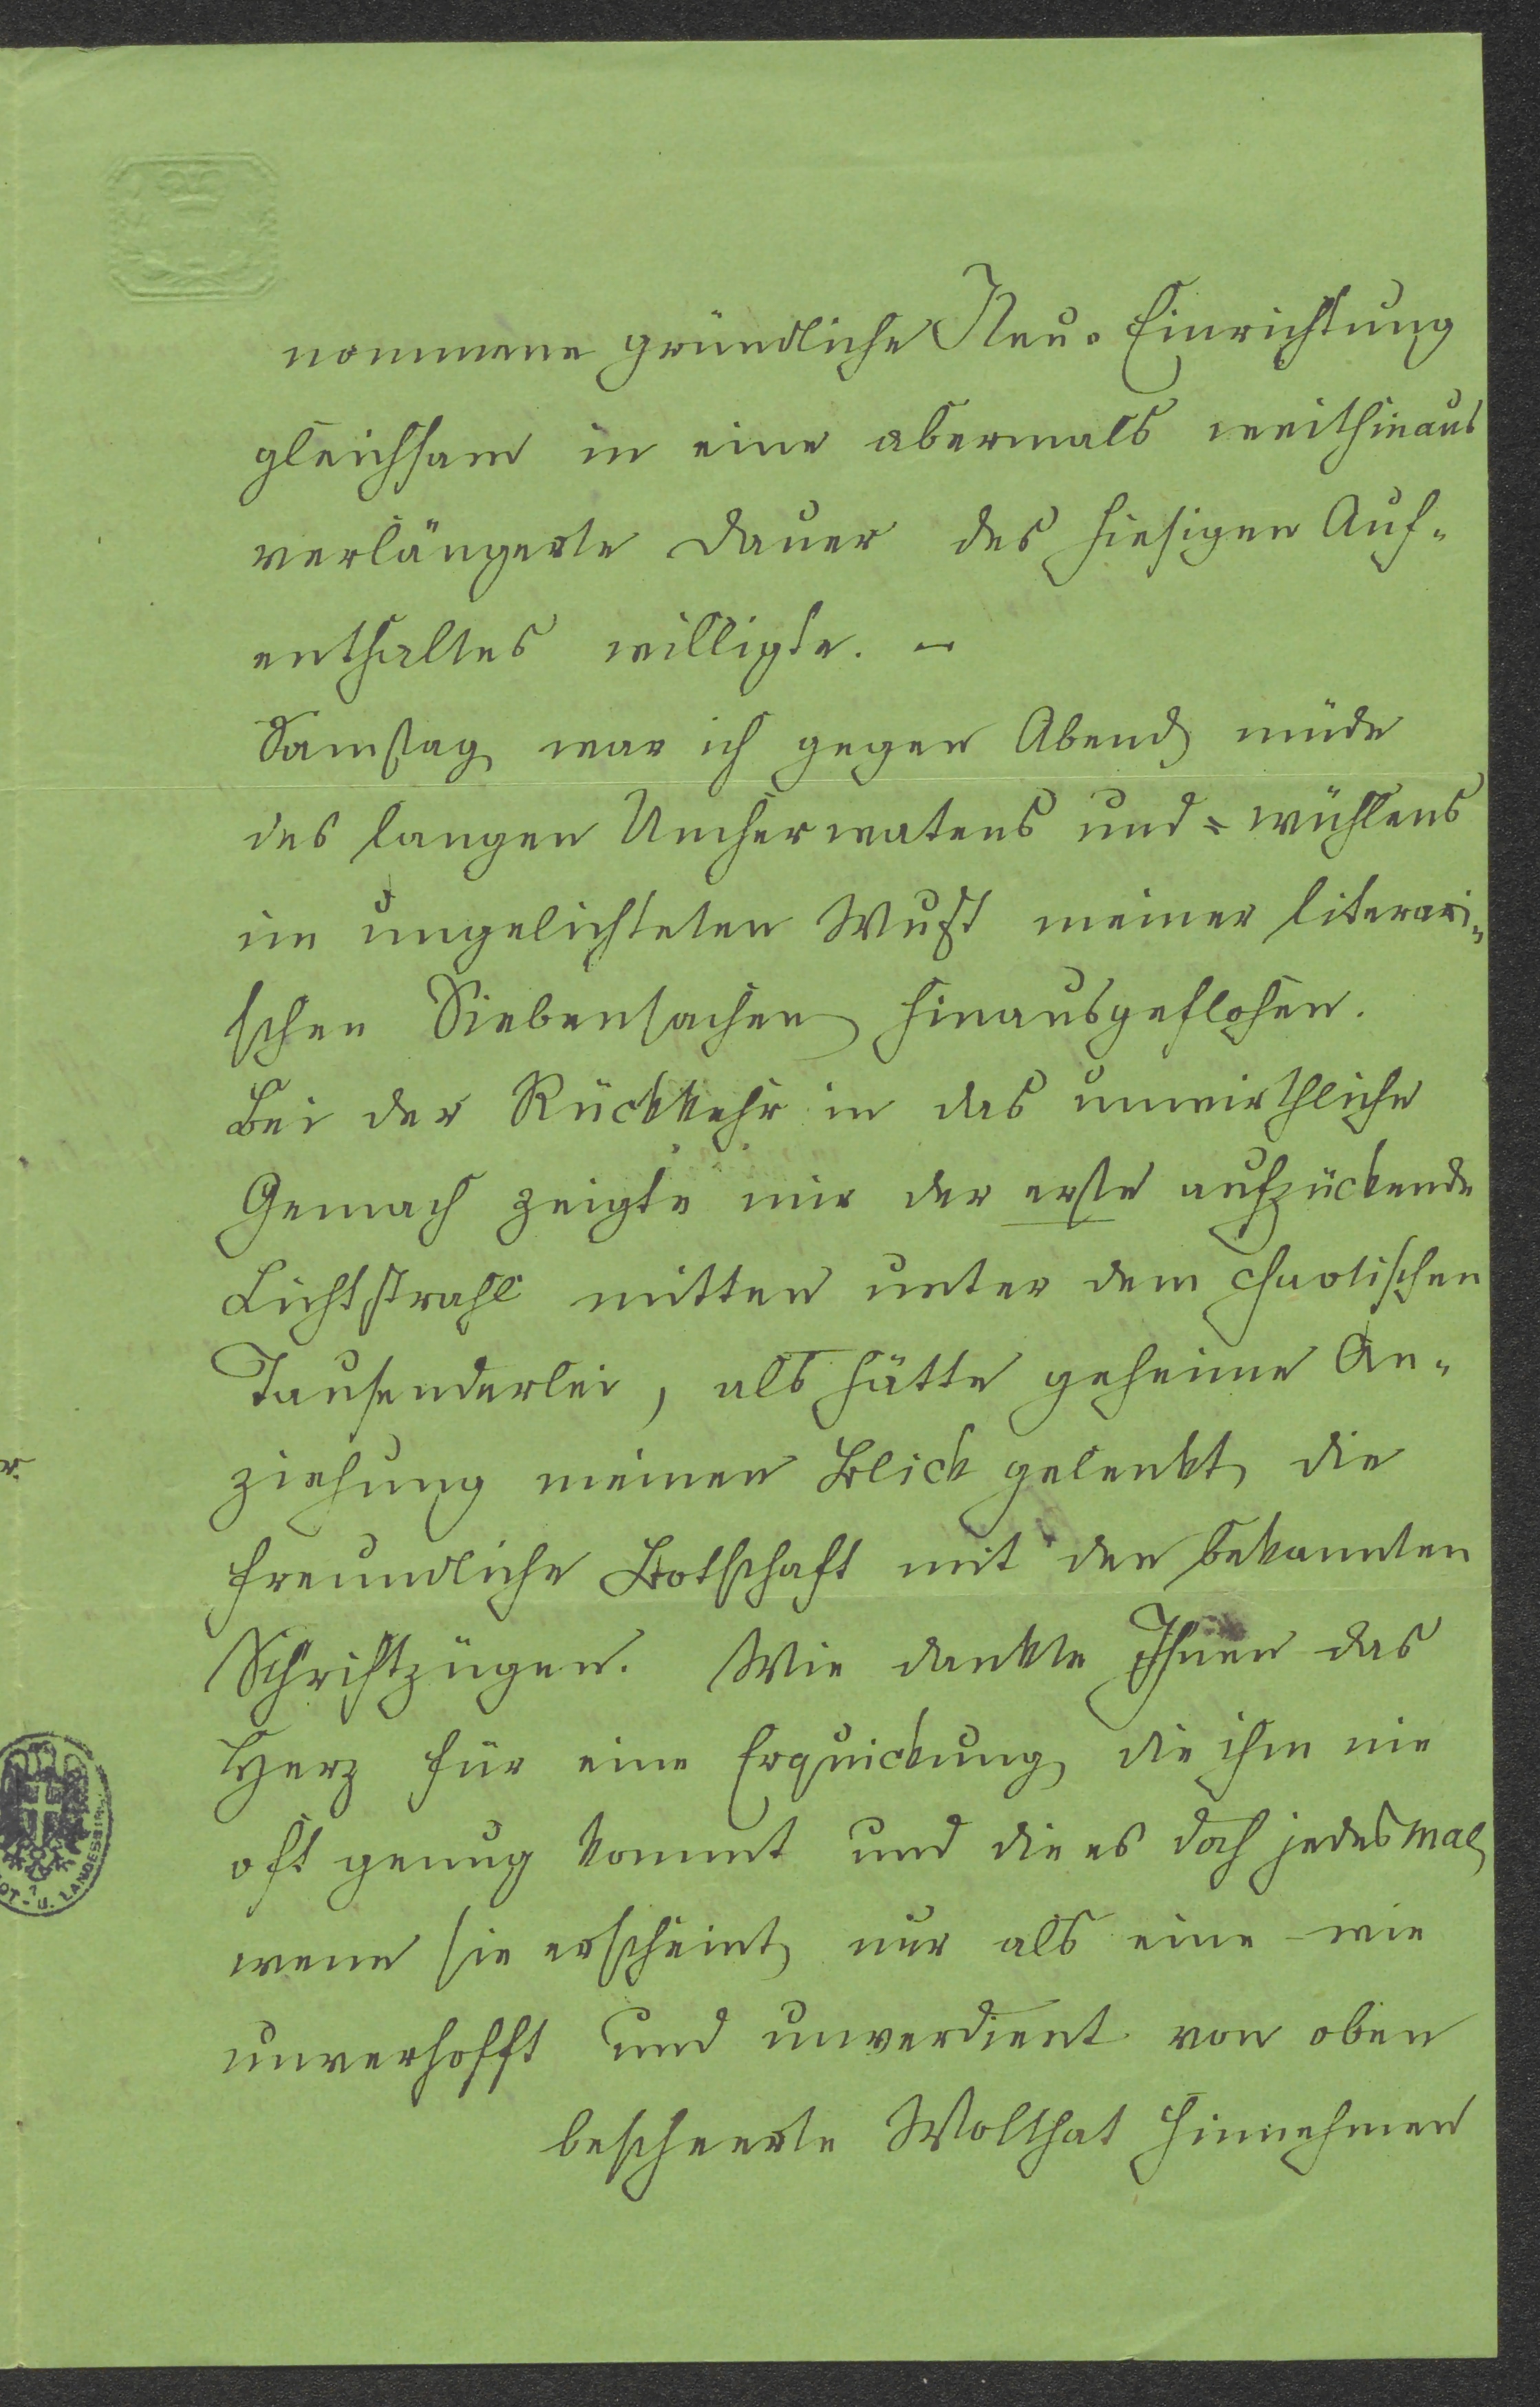 nommene gründliche Neu-Einrichtung
gleichsam in eine abermals weithinaus
verlängerte Dauer des hiesigen Auf-
enthaltes willigte. –
Samstag war ich gegen Abend müde
des langen Umherwatens und =wühlens
im ungelichteten Wust meiner literari-
schen Siebensachen hinausgeflohen.
Bei der Rückkehr in das unwirthliche
Gemach zeigte mir der erste aufzückende
Lichtstrahl mitten unter dem chaotischen
Tausenderlei, als hätte geheime An-
ziehung meinen Blick gelenkt, die
freundliche Botschaft mit den bekannten
Schriftzügen. Wie dankte Ihnen das
Herz für eine Erquickung, die ihm nie
oft genug kommt und die es doch jedesmal,
wenn sie erscheint, nur als eine wie
unverhofft und unverdient von oben
bescheerte Wolthat hinnehmen
OT- U. LANDESBI